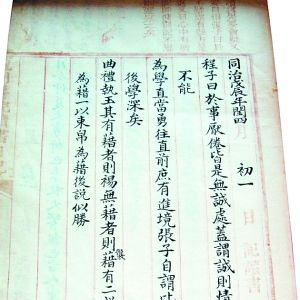 同治戊辰年閏四
初一
程子曰於事厭倦皆是無誠處蓋謂誠則情
不能
為學直當勇往直前庶有進境張子自謂
後學深矣
曲禮執玉其有藉者則裼無藉者則襲藉有二
為藉一以束帛為藉後說似勝